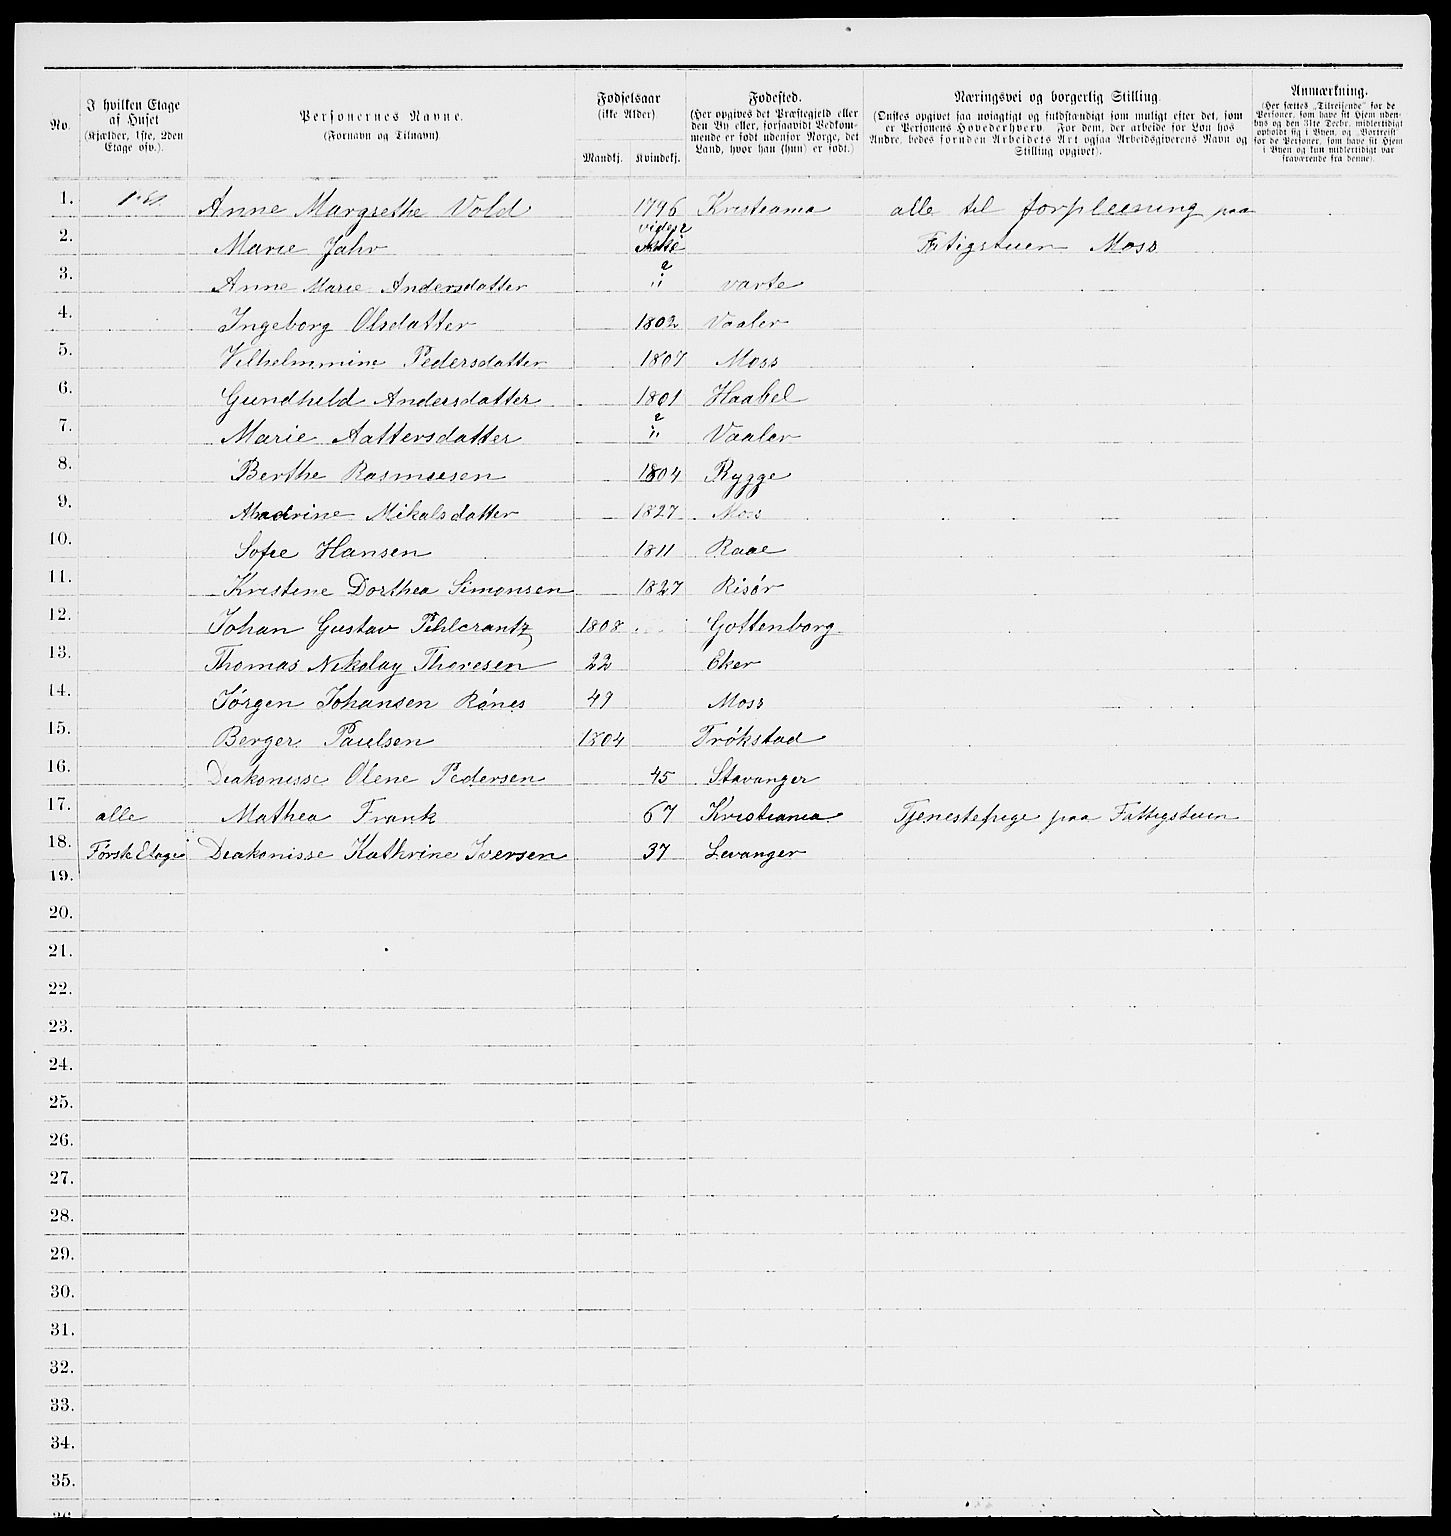 No. | I hvilken Etage af Huset (Kjælder, 1ste, 2den Etage osv.). | Personernes Navne. (Fornavn og Tilnavn). | Fødselsaar (ikke Alder) Mandkj. Kvindekj. | Fødested. (Her opgives det Præstegjeld eller den By eller, forsaavidt Vedkommende er født udenfor Norge, det Land, hvor han (hun) er født.) | Næringsvei og borgerlig Stilling. (Ønskes opgivet saa nøiagtigt og fuldstændigt som muligt efter det, som er Personens Hovederhverv. For dem, der arbeide for Løn hos Andre, bedes foruden Arbeidets Art ogsaa Arbeidsgiverens Navn og Stilling opgivet). | Anmærkning. (Her sættes „Tilreisende" for de Personer, som have sit Hjem udenbys og den 31te Decbr. midlertidigt opholdt sig i Byen, og „Bortreist" for de Personer, som have sit Hjem i Byen og kun midlertidigt var fraværende fra denne).
1. Anne Margrethe Vold 1796 Kristiania alle til forpleining paa
2. Marie Jahr vides ikke Fatigstuen Moss
3. Anne Marie Andersdatter ? " varte
4. Ingeborg Olsdatter 1802 Vaaler
5. Vilhelmmine Pedersdatter 1807 Moss
6. Gundhild Andersdatter 1801 Haabel
7. Marie Aattersdatter ? " Vaaler
8. Berthe Rasmussen 1804 Rygge
9. Mikalsdatter 1827 Moss
10. Sofie Hansen 1811 Raae
11. Kristine Dorthea Simonsen 1827 Risør
12. Johan Gustav Pihlcrantz 1808 Gottenborg
13. Thomas Nikolay Theresen 22 Eker
14. Jørgen Johansen Rønes 49 Moss
15. Berger Paulsen 1804 Trøkstad
16. Diakonisse Olene Pedersen 45 Stavanger
17. alle Mathea Frank 67 Kristiania Tjenestepige paa Fattigstuen
18. Første Etage Diakonisse Kathrine Iversen 37 Levanger
19.
20.
21.
22.
23.
24.
25.
26.
27.
28.
29.
30.
31.
32.
33.
34.
35.